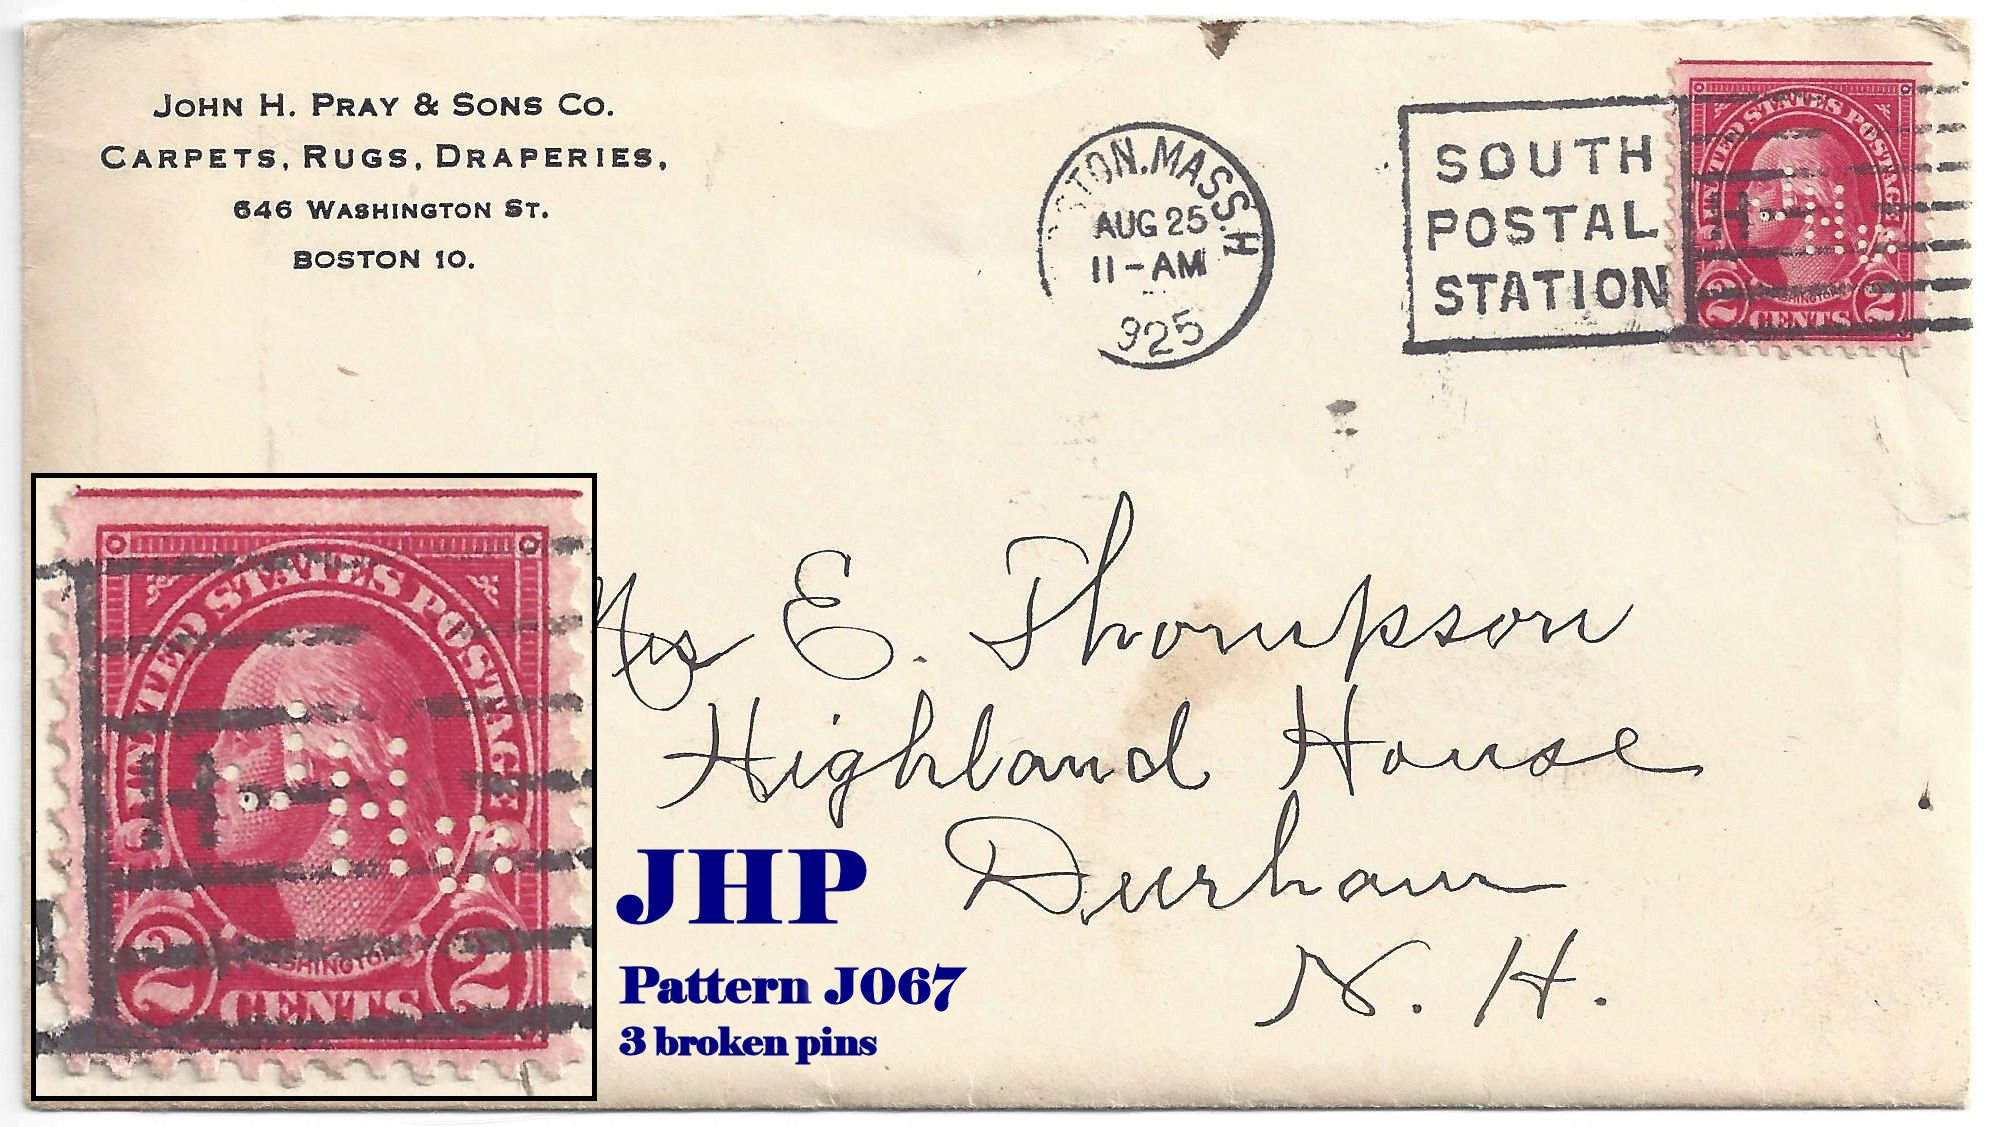 JOHN H. PRAY & SONS CO.
CARPETS, RUGS, DRAPERIES,
646 WASHINGTON ST.
BOSTON 10.
STON, MASS. H
AUG 25
11-AM
925
SOUTH
POSTAL
STATION
UNITED STATES POSTAGE
WASHINGTON
2 CENTS 2
UNITED STATES POSTAGE
WASHINGTON
2 CENTS 2
Mrs E. Thompson
Highland House
Durham
N. H.
JHP
Pattern J067
3 broken pins